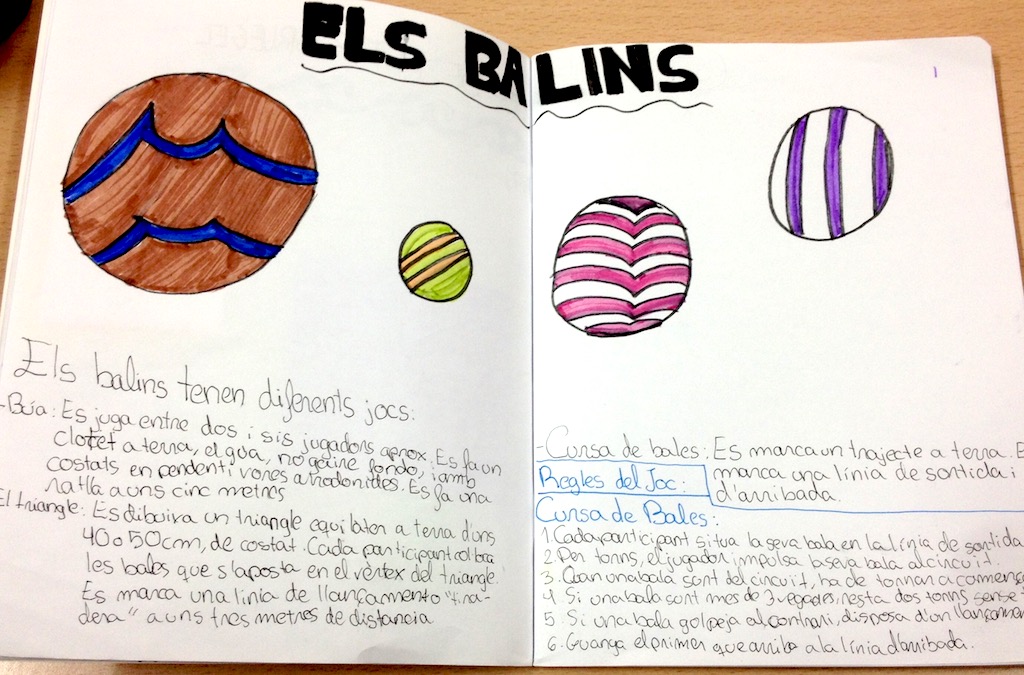 ELS BALINS
Els balins tenen diferents jocs:
-Búa: Es juga entre dos i sis jugadors aprox. Es fa un
clotet a terra, el gua, no gaire fondo, i amb
costats en pendent i vores arrodonides. Es fa una
ratlla a uns cinc metres
El triangle: Es dibuixa un triangle equilàter a terra d'uns
40 o 50 cm, de costat. Cada participant col·loca
les bales que s'aposta en el vèrtex del triangle.
Es marca una línia de llançament "tira-
dera" a uns tres metres de distància
1
-Cursa de bales: Es marca un trajecte a terra. E
marca una línia de sortida i
d'arribada.
Regles del Joc:
Cursa de Bales:
1. Cada participant situa la seva bala en la línia de sortida
2. Per torns, el jugador impulsa la seva bala al circuit.
3. Quan una bala sont del circuit, ha de tornar a comença
4. Si una bala sont mes de 3 vegades, resta dos torns sense
5. Si una bala golpeja al contrari, disposa d'un llançamen
6. Guanya el primer que arriba a la línia d'arribada.